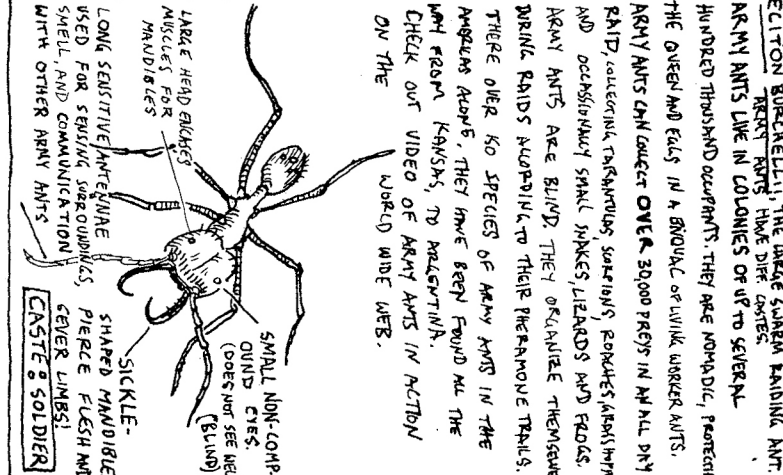 ECITON BURCHELLI, THE LARGE SWARM RAIDING ANT
ARMY ANTS HAVE DIFF. CASTES.
ARMY ANTS LIVE IN COLONIES OF UP TO SEVERAL
HUNDRED THOUSAND OCCUPANTS. THEY ARE NOMADIC, PROTECTI
THE QUEEN AND EGGS IN A BIVOUAC OF LIVING WORKER ANTS.
ARMY ANTS CAN COLLECT OVER 30,000 PREYS IN AN ALL DAY
RAID, COLLECTING TARANTULAS, SCORPIONS, ROACHES, GRASSHOPP
AND OCCASSIONALLY SMALL SNAKES, LIZARDS AND FROGS.
ARMY ANTS ARE BLIND. THEY ORGANIZE THEMSELVE
DURING RAIDS ACCORDING TO THEIR PHERAMONE TRAILS.
THERE OVER 150 SPECIES OF ARMY ANTS IN THE
AMERICAS ALONE. THEY HAVE BEEN FOUND ALL THE
WAY FROM KANSAS, TO ARGENTINA.
CHECK OUT VIDEO OF ARMY ANTS IN ACTION
ON THE WORLD WIDE WEB.
LARGE HEAD ENCASES
MUSCLES FOR
MANDIBLES
SMALL NON-COMP-
OUND EYES.
(DOES NOT SEE WEL
(BLIND)
LONG SENSITIVE ANTENNAE
USED FOR SENSING SURROUNDINGS,
SMELL, AND COMMUNICATION
WITH OTHER ARMY ANTS
SICKLE-
SHAPED MANDIBLE
PIERCE FLESH AN
SEVER LIMBS!
CASTE: SOLDIER